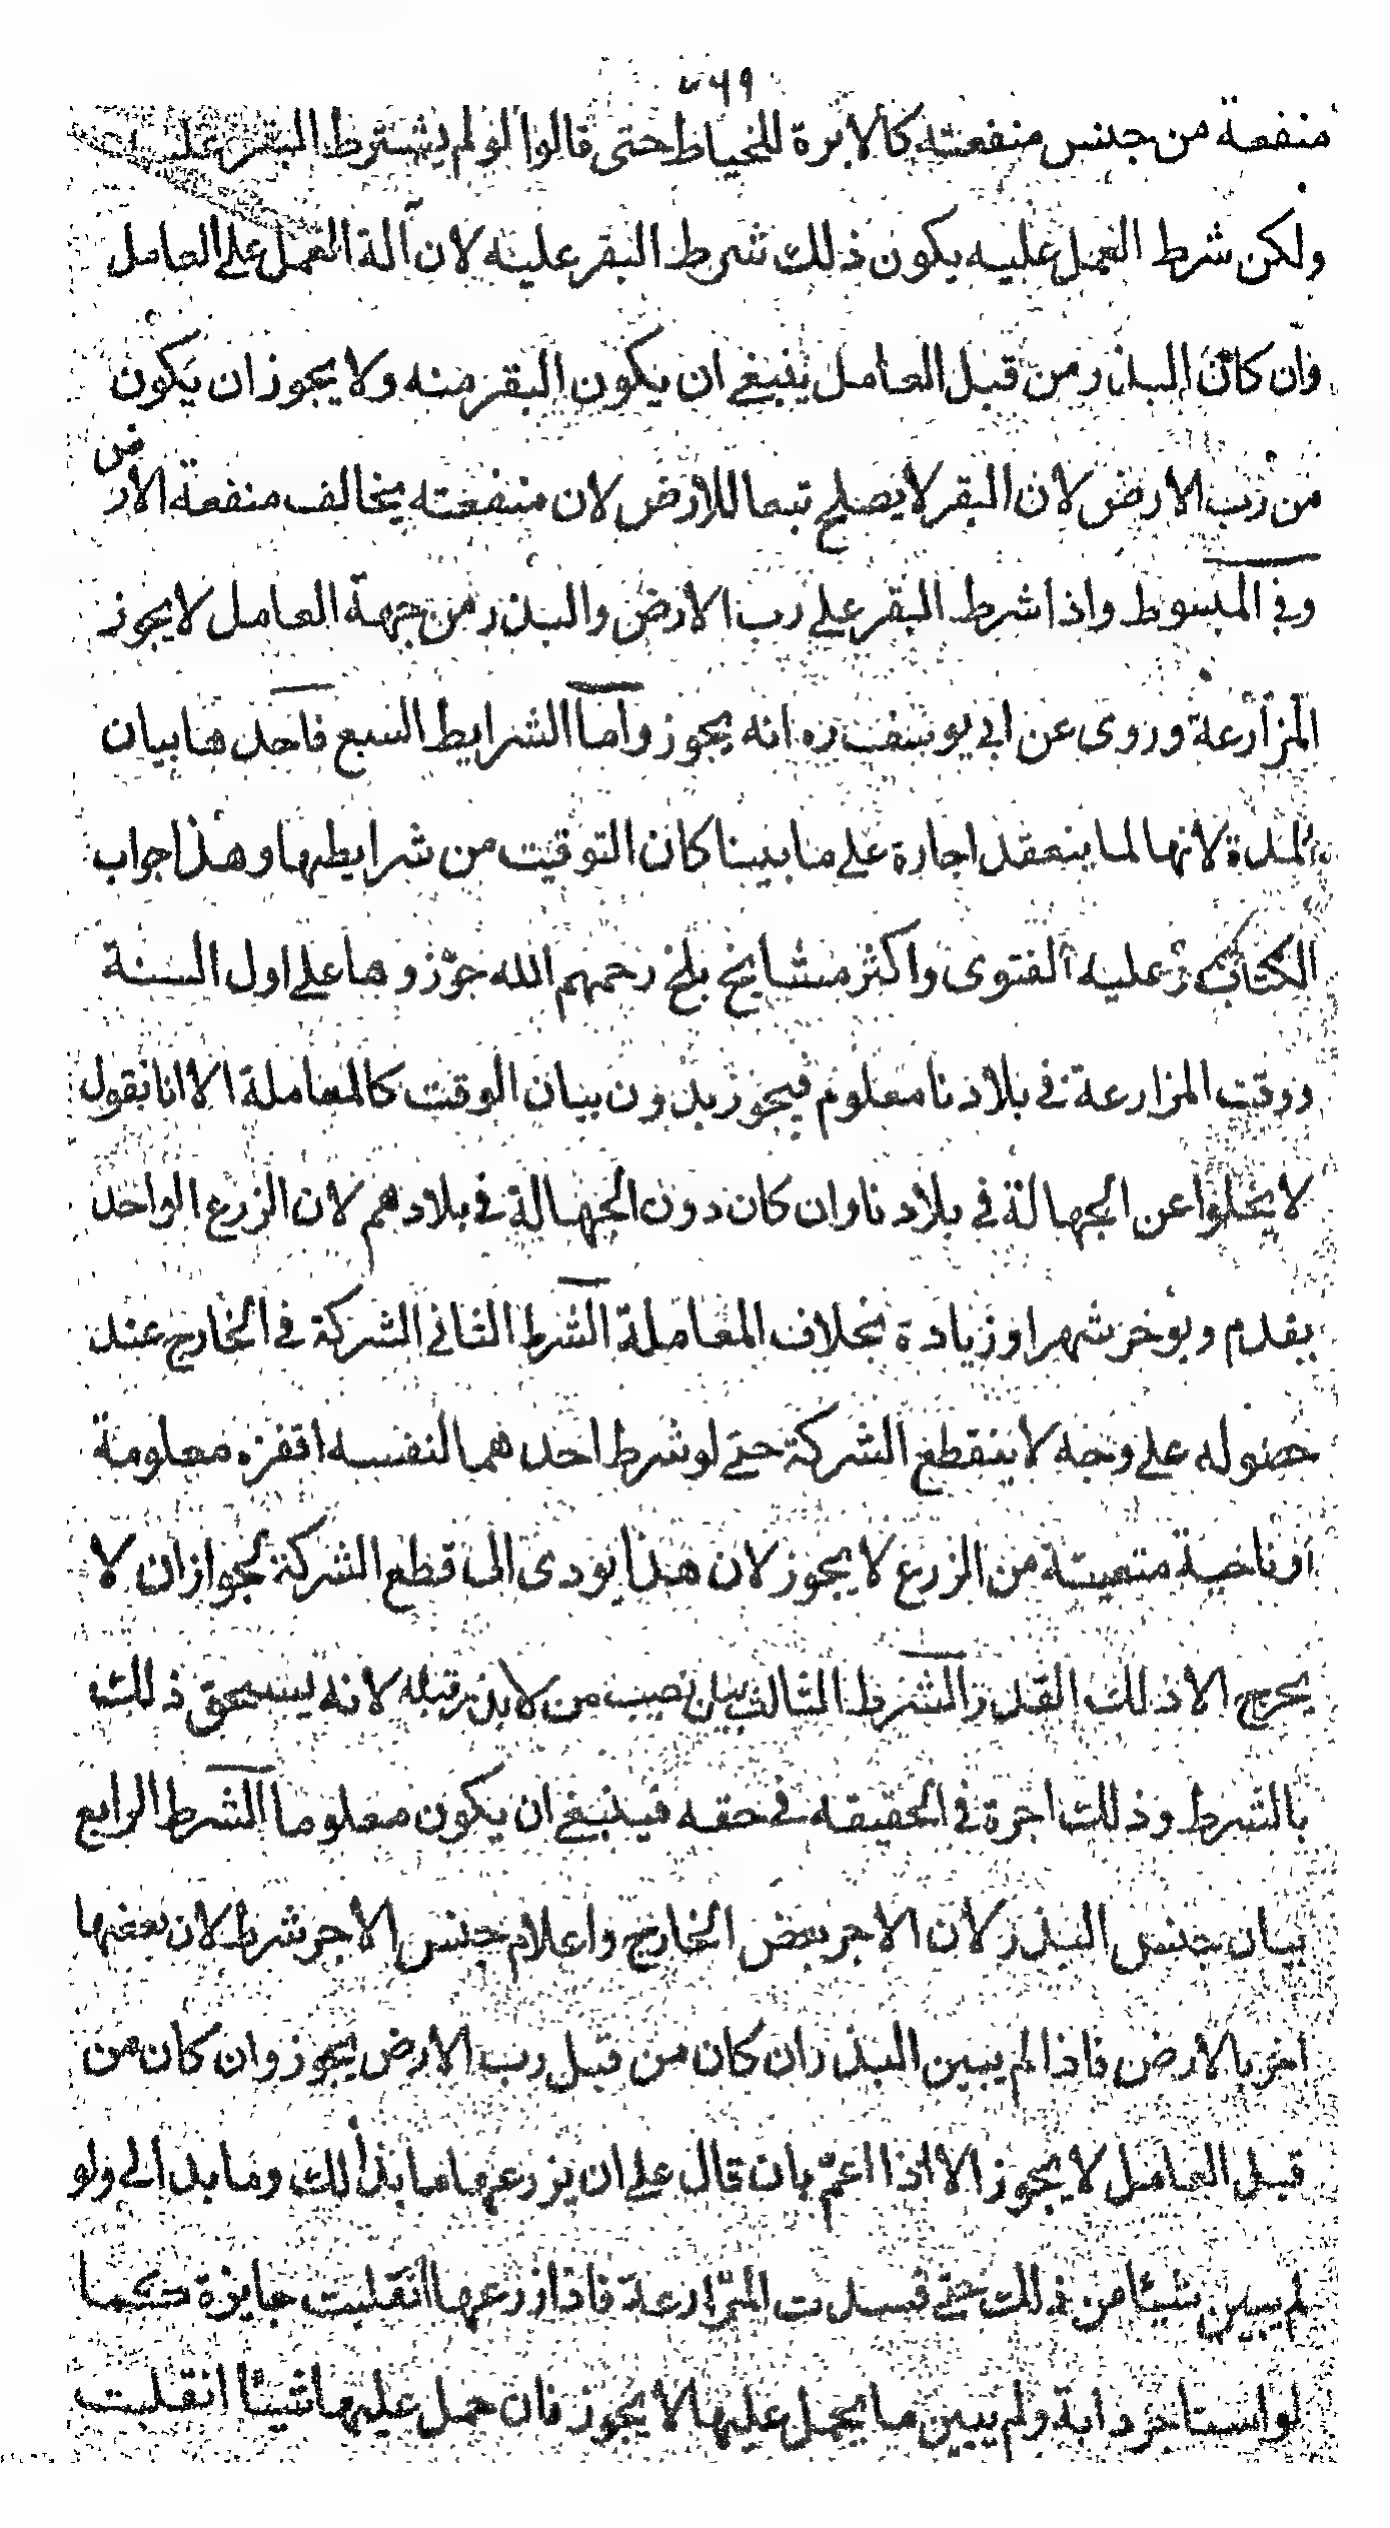 ٧٦٩
منفعة من جنس منفعته كالابرة للخياط حتى قالوا لو لم يشترط البقر عليه
ولكن شرط العمل عليه يكون ذلك شرط البقر عليه لان آلة العمل على العامل
وان كان البذر من قبل العامل ينبغي ان يكون البقر منه ولا يجوز ان يكون
من رب الارض لان البقر لا يصلح تبعا للارض لان منفعته يخالف منفعة الارض
وفي المبسوط واذا شرط البقر على رب الارض والبذر من جهة العامل لا يجوز
المزارعة وروى عن ابي يوسف ره انه يجوز واما الشرايط السبع فاحدها بيان
المدة لانها لما ينعقد اجارة على ما بينا كان التوقيت من شرايطها وهذا جواب
الكتاب وعليه الفتوى واكثر مشايخ بلخ رحمهم الله جوّزوها على اول السنة
ووقت المزارعة في بلادنا معلوم فيجوز بدون بيان الوقت كالمعاملة الا انا نقول
لا يخلوا عن الجهالة في بلادنا وان كان دون الجهالة في بلادهم لان الزرع الواحد
يقدم ويوخر شهرا وزيادة بخلاف المعاملة الشرط الثاني الشركة في الخارج عند
حصوله على وجه لا ينقطع الشركة حتى لو شرط احدهما لنفسه اقفزه معلومة
او ناحية متعينة من الزرع لا يجوز لان هذا يودى الى قطع الشركة لجواز ان لا
يخرج الا ذلك القدر والشرط الثالث بيان نصيب من لا بذر قبله لانه يستحق ذلك
بالشرط وذلك اجرة في الحقيقه في حقه فينبغي ان يكون معلوما الشرط الرابع
بيان جنس البذر لان الاجر بعض الخارج واعلام جنس الاجر شرط لان بعضها
اضر بالارض فاذا لم يبين البذر ان كان من قبل رب الارض يجوز وان كان من
قبل العامل لا يجوز الا اذا اعمّ بان قال على ان يزرعها ما بدأ لك وما بدا لي ولو
لم يبين شيئا من ذلك حتى فسدت المزارعة فاذا زرعها انقلبت جايزة كما
لو استاجر دابة ولم يبين ما يحمل عليها لا يجوز فان حمل عليها شيئا انقلبت